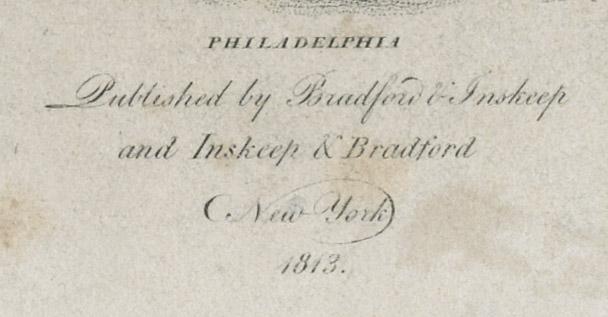 PHILADELPHIA
Published by Bradford & Inskeep
and Inskeep & Bradford
(New York)
1813.